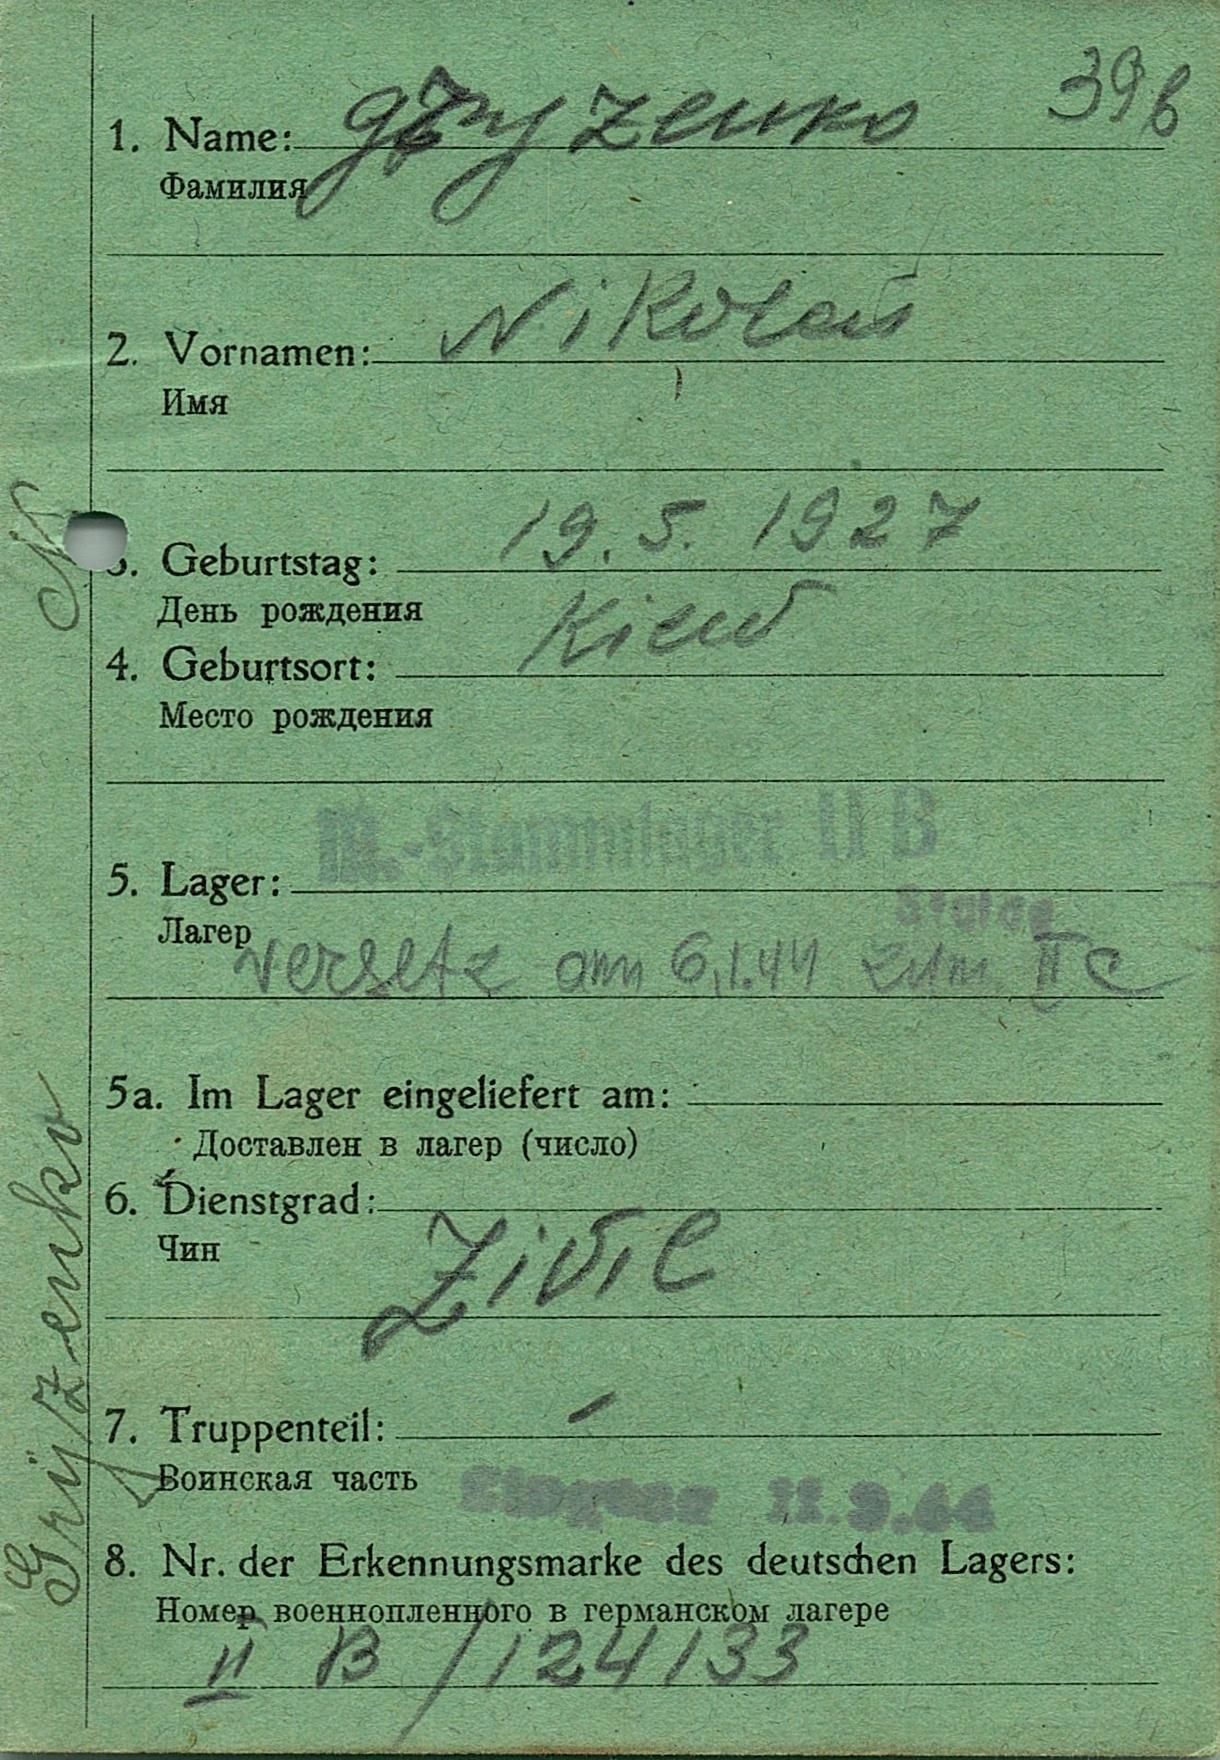 39 b
1. Name: Gryzenko
Фамилия
2. Vornamen: Nikolaus
Имя
3. Geburtstag: 19. 5. 1927
День рождения
4. Geburtsort: Kiew
Место рождения
M.-Stammlager II B
5. Lager:
Stalag
Лагер
versetz am 6.1.44 zum II C
5a. Im Lager eingeliefert am:
Доставлен в лагер (число)
6. Dienstgrad:
Чин
Zivil
7. Truppenteil: –
Воинская часть
11.9.44
8. Nr. der Erkennungsmarke des deutschen Lagers:
Номер военнопленного в германском лагере
II B / 124133
Grijzenko N